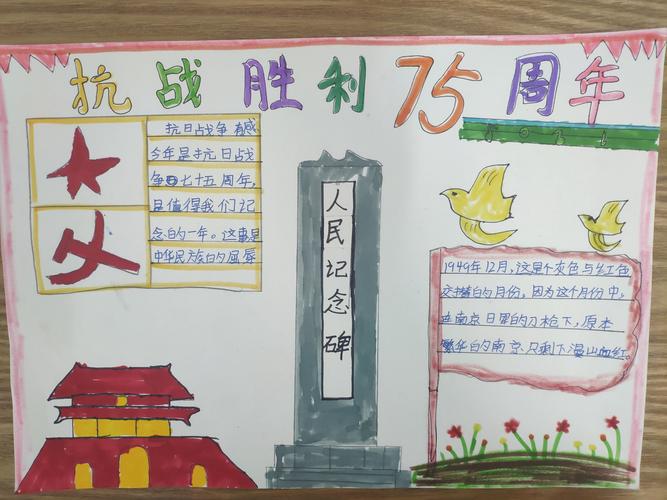 抗战胜利75周年
抗日战争有感
今年是抗日战
争七十五周年,
是值得我们记
念的一年。这事是
中华民族的屈辱
人民记念碑
1949年12月,这是个灰色与红色
交替的月份,因为这个月份中,
在南京日军的刀枪下,原本
繁华的南京只剩下漫山血红。